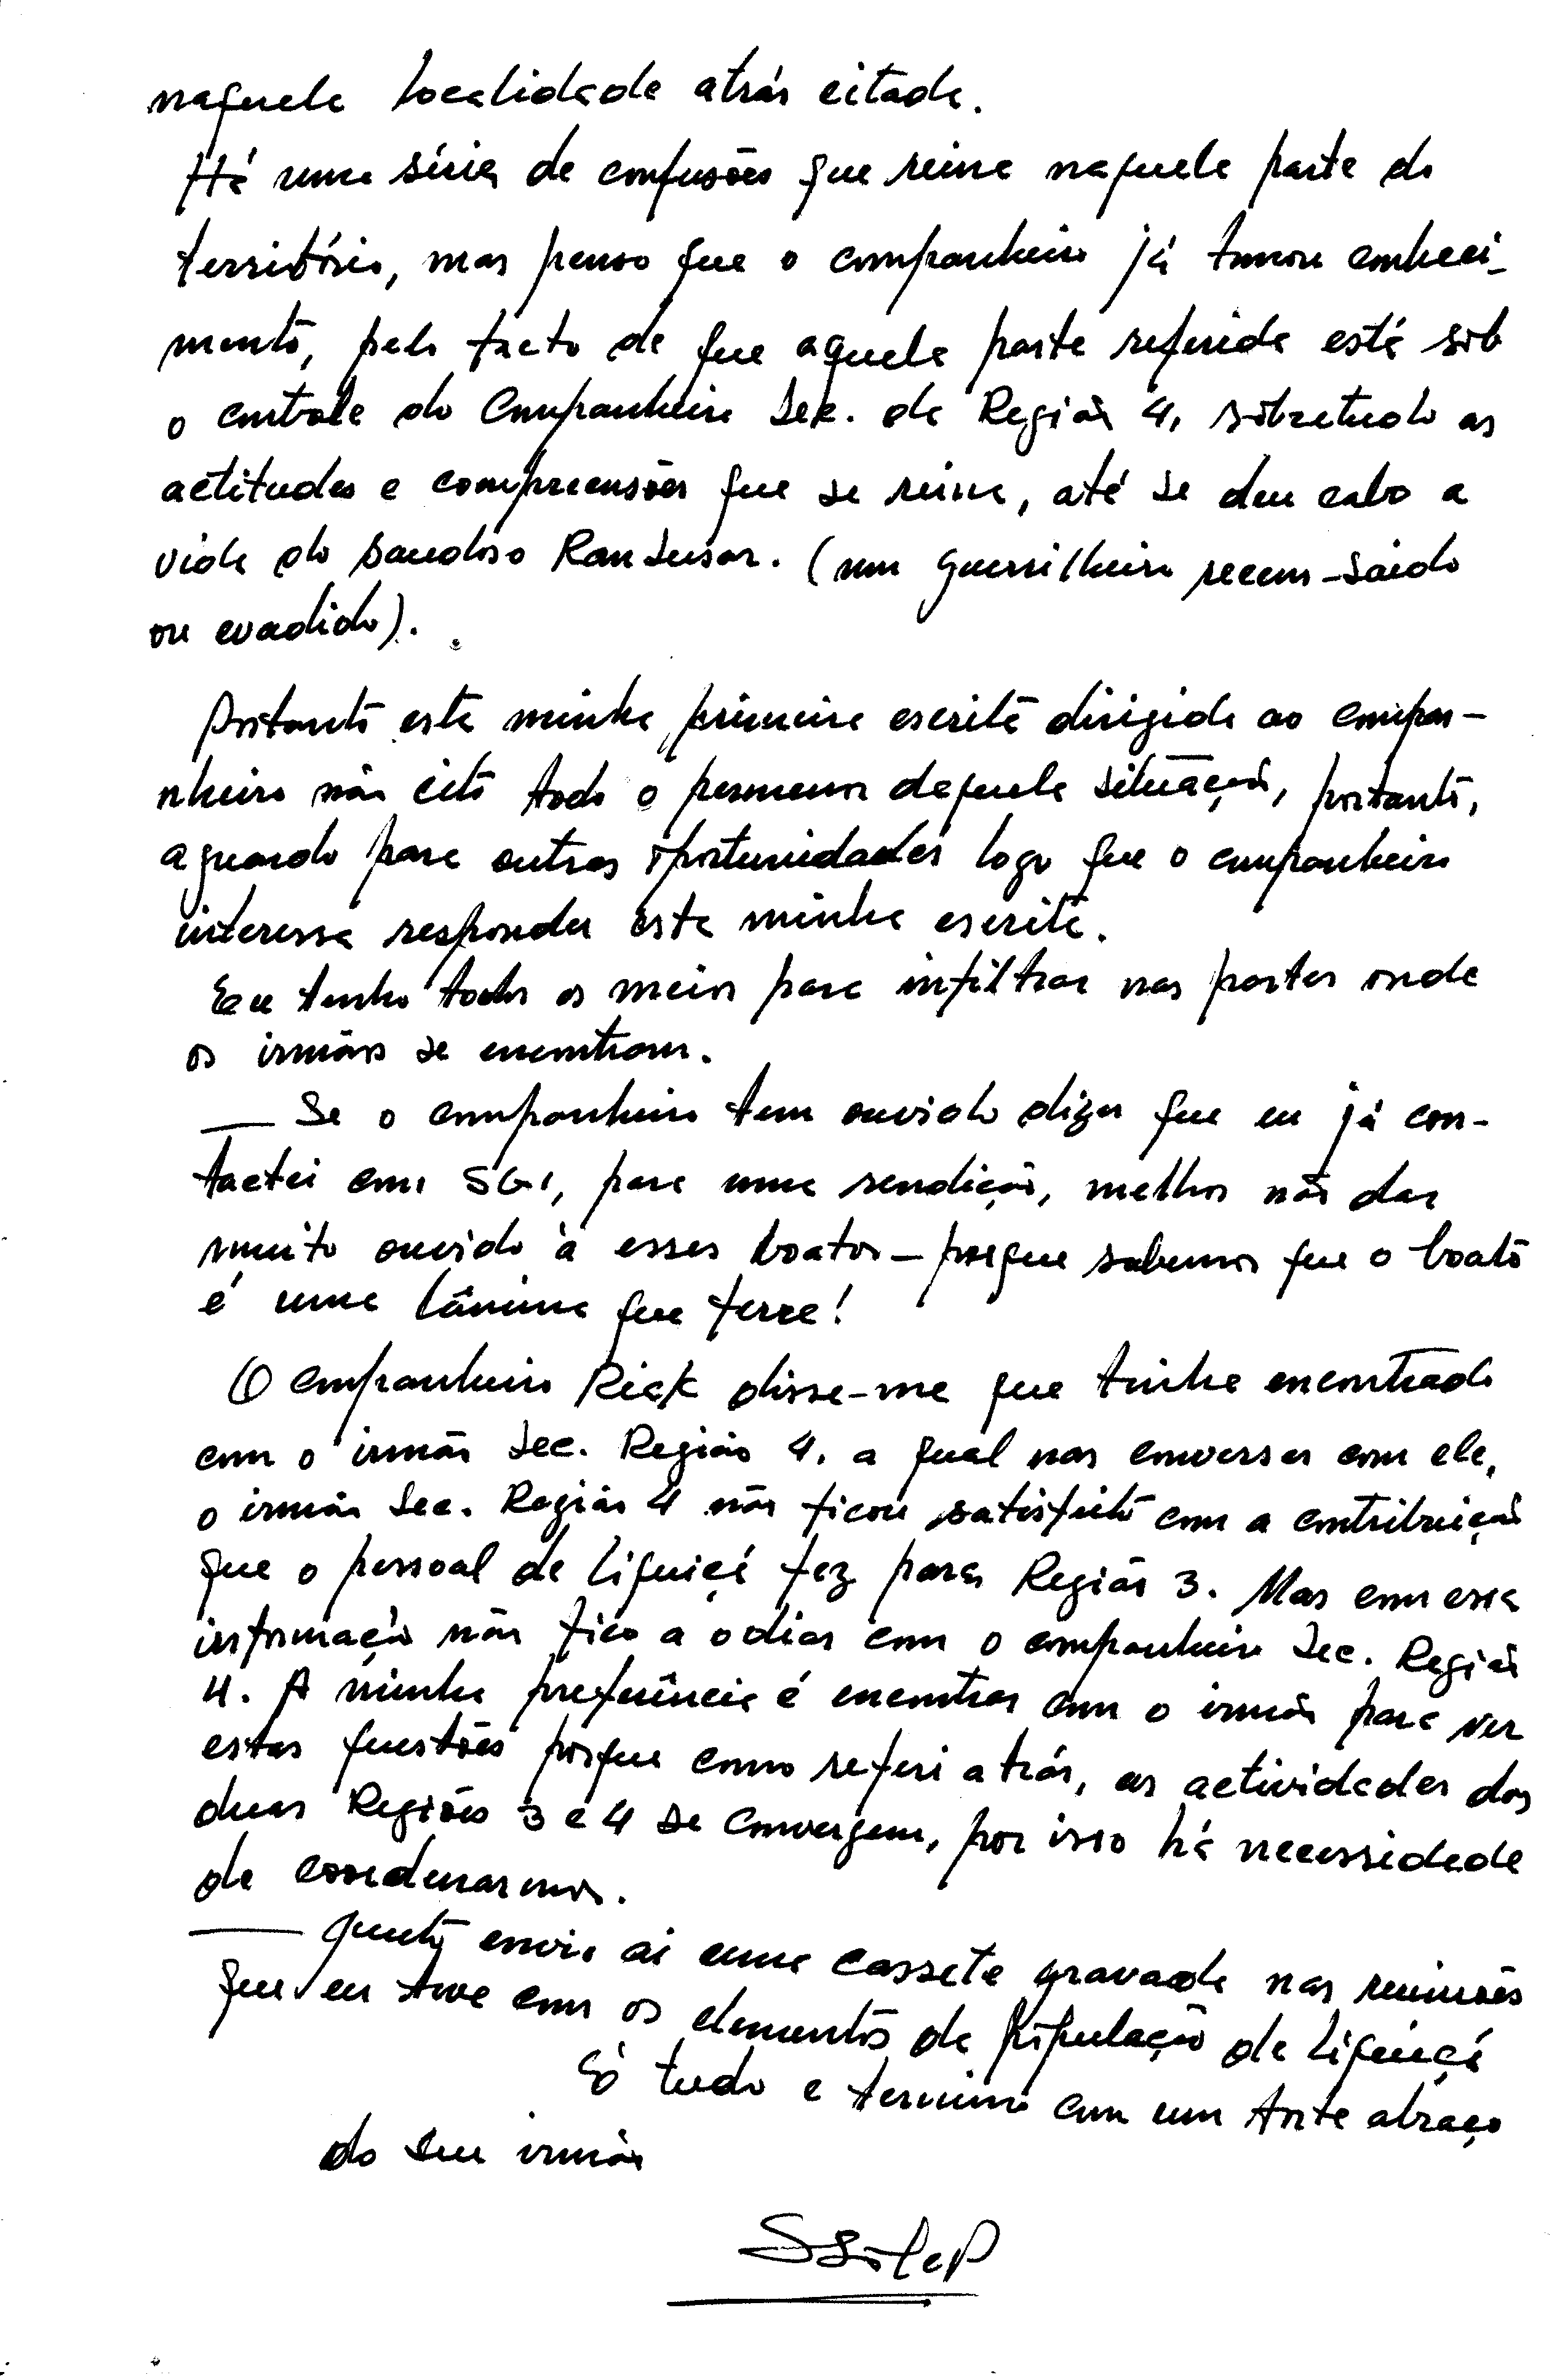 naquela localidade atrás citada.
Há uma séria de confusões que reina naquela parte do
território, mas penso que o companheiro já tomou conheci-
mento, pelo facto de que aquela parte referida está sob
o controle do Companheiro Sek. da Região 4, sobretudo as
actitudes e compreensões que se reina, até se deu cabo a
vida do saudoso Ran Susar. (um guerrilheiro recem-saido
ou evadido).
Portanto esta minha primeira escrita dirigida ao compa-
nheiro não cito todo o pormenor daquela situação, portanto,
aguardo para outras oportunidades logo que o companheiro
interessa responder esta minha escrita.
Eu tenho todos os meios para infiltrar nas partes onde
os irmãos se encontram.
— Se o companheiro tem ouvido dizer que eu já con-
tactei com SGI, para uma rendição, melhor não dar
muito ouvido à esses boatos - porque sabemos que o boato
é uma lâmina que ferre!
O companheiro Rick disse-me que tinha encontrado
com o irmão Sec. Região 4, a qual nas conversas com ele,
o irmão Sec. Região 4 não ficou satisfeito com a contribuição
que o pessoal de Liquiçá fez para Região 3. Mas com essa
informação não fico a odiar com o companheiro Sec. Região
4. A minha preferência é encontrar com o irmão para ver
estas questões porque como referi atrás, as actividades das
duas Regiões 3 e 4 se convergem, por isso há necessidade
de coordenarmos.
— Junto envio ai uma cassete gravada nas reuniões
que eu tive com os elementos da população de Liquiçá
Só tudo e termino com um forte abraço
do seu irmão